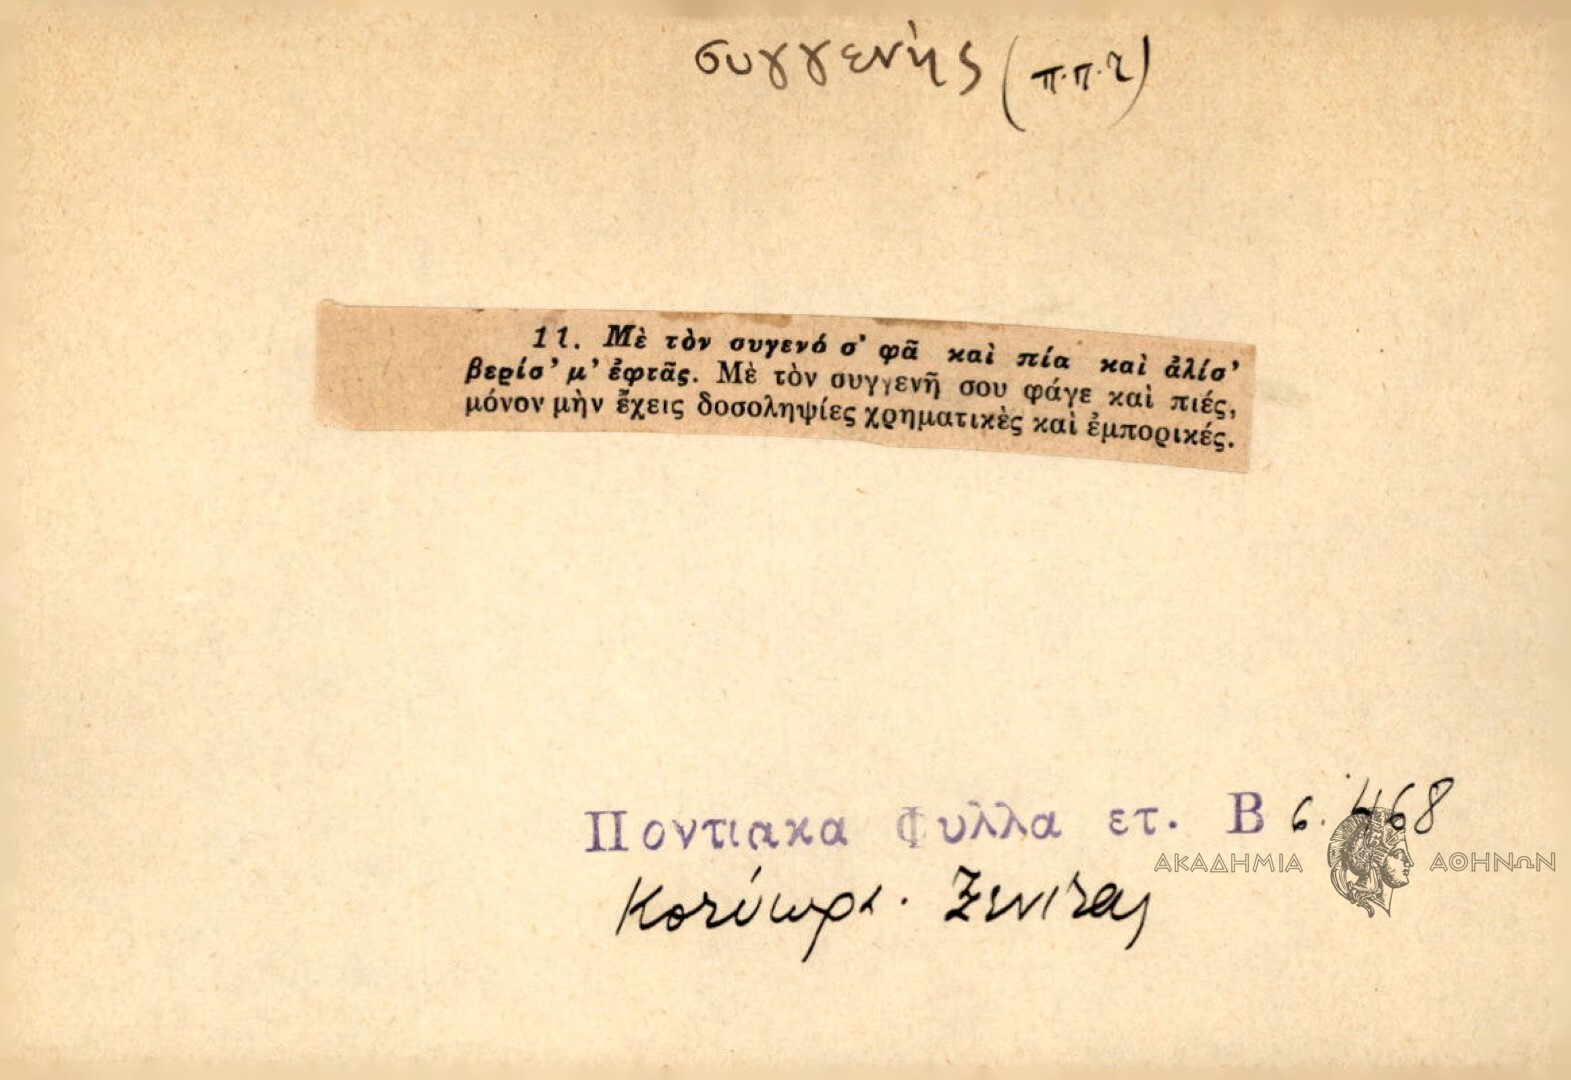 συγγενής (π.π.2)
11. Μὲ τὸν συγενό σ' φᾶ καὶ πία καὶ ἀλίσ'
βερίσ' μ' ἐφτᾶς. Μὲ τὸν συγγενῆ σου φάγε καὶ πιές,
μόνον μὴν ἔχεις δοσοληψίες χρηματικὲς καὶ ἐμπορικές.
Ποντιακα Φυλλα ετ. Β σ. 468
ΑΚΑΔΗΜΙΑ ΑΘΗΝΩΝ
Κοτύωρα. Ξενίτας